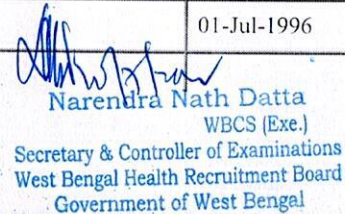 01-Jul-1996
Narendra Nath Datta
WBCS (Exe.)
Secretary & Controller of Examinations
West Bengal Health Recruitment Board
Government of West Bengal